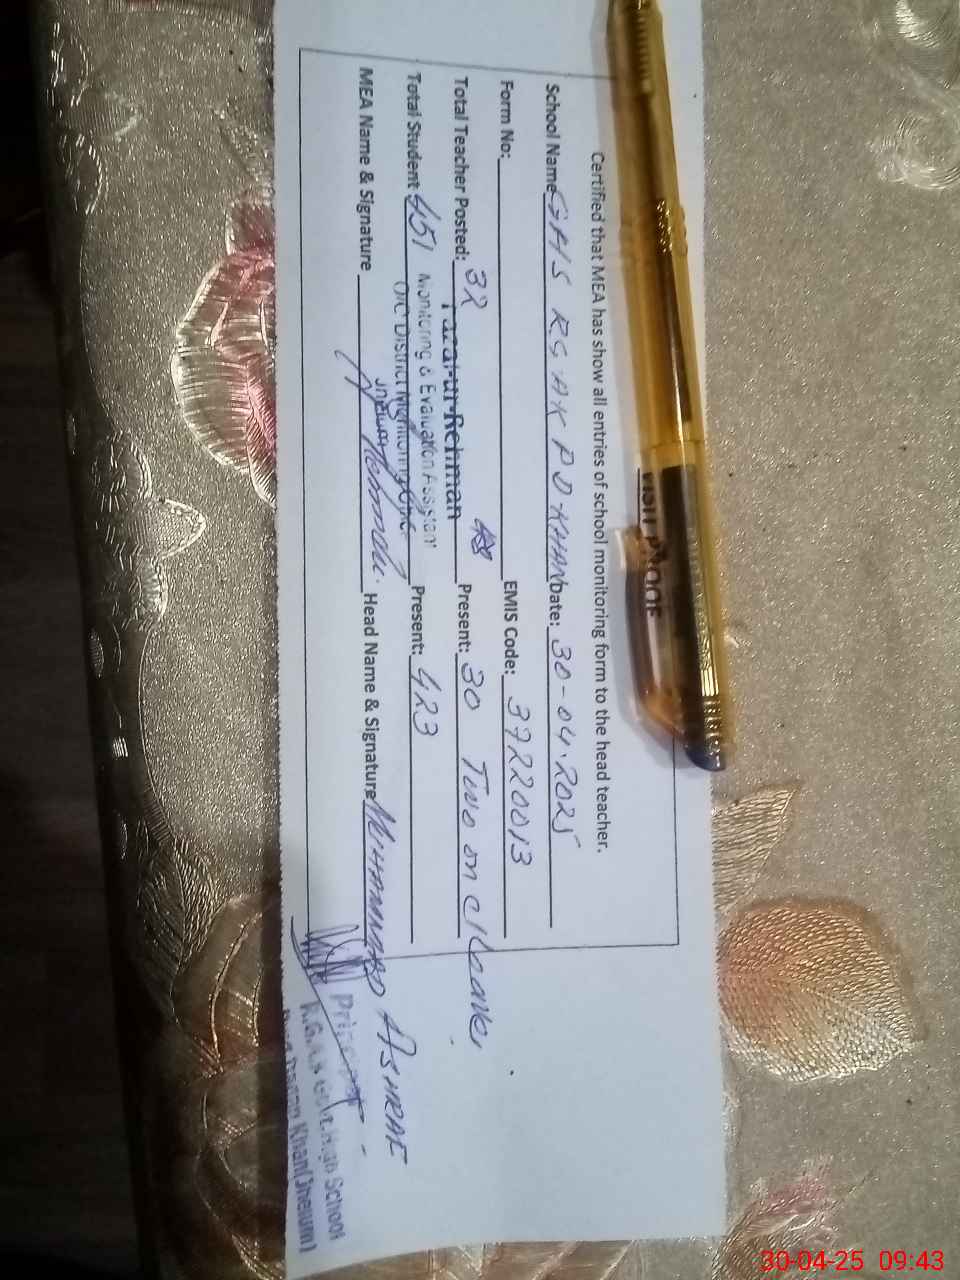 VISIT PROOF
Certified that MEA has show all entries of school monitoring form to the head teacher.
School Name GHS RGAK P D KHAN Date: 30-04-2025
Form No: EMIS Code: 37220013
Total Teacher Posted: 32 Present: 30 Two on c/leave
Fazal-ur-Rehman
Total Student 451 Present: 423
Monitoring & Evaluation Assistant
O/O District Monitoring
MEA Name & Signature Head Name & Signature MUHAMMAD ASHRAF
Principal
High School
Khan (Jhelum)
30-04-25 09:43